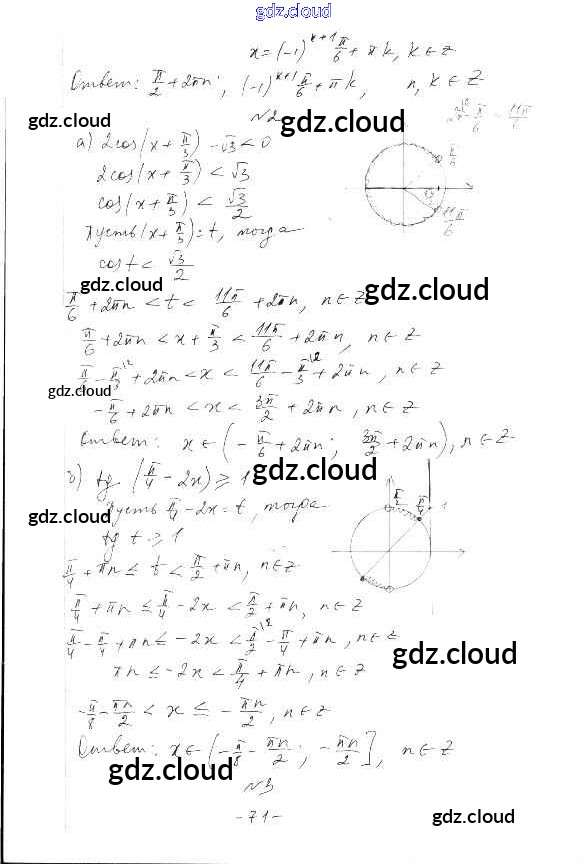 gdz.cloud
x = (-1)^{k+1} π/6 + πk, k ∈ Z
Ответ: π/2 + 2πn; (-1)^{k+1} π/6 + πk, n, k ∈ Z
№2
gdz.cloud gdz.cloud
а) 2cos(x + π/3) - √3 < 0
2π - π/6 = 11π/6
2cos(x + π/3) < √3
π/6
cos(x + π/3) < √3/2
11π/6
Пусть (x + π/3) = t, тогда
cos t < √3/2
gdz.cloud gdz.cloud
π/6 + 2πn < t < 11π/6 + 2πn, n ∈ Z
π/6 + 2πn < x + π/3 < 11π/6 + 2πn, n ∈ Z
π/6 - π/3 + 2πn < x < 11π/6 - π/3 + 2πn, n ∈ Z
gdz.cloud
-π/6 + 2πn < x < 3π/2 + 2πn, n ∈ Z
Ответ: x ∈ (-π/6 + 2πn; 3π/2 + 2πn), n ∈ Z
б) tg(π/4 - 2x) ≥ 1
gdz.cloud
π/2 π/4 1
Пусть π/4 - 2x = t, тогда
gdz.cloud gdz.cloud
tg t ≥ 1
π/4 + πn ≤ t < π/2 + πn, n ∈ Z
π/4 + πn ≤ π/4 - 2x < π/2 + πn, n ∈ Z
π/4 - π/4 + πn ≤ -2x < π/2 - π/4 + πn, n ∈ Z
gdz.cloud
πn ≤ -2x < π/4 + πn, n ∈ Z
-π/8 - πn/2 < x ≤ -πn/2, n ∈ Z
Ответ: x ∈ (-π/8 - πn/2; -πn/2], n ∈ Z
gdz.cloud
№3
-71-
gdz.cloud